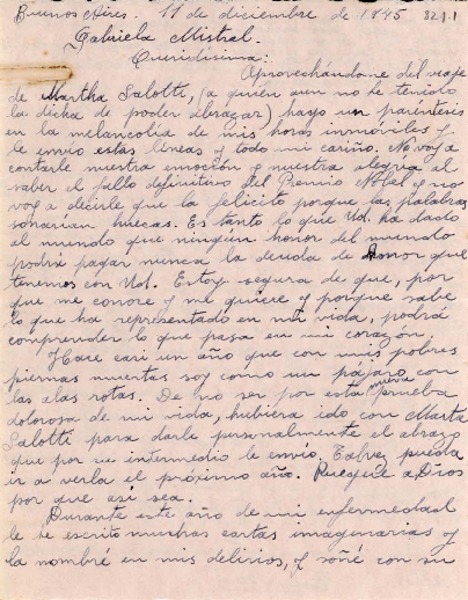 Buenos Aires. 11 de diciembre de 1945 82.1.1
Gabriela Mistral.
Queridísima:
Aprovechándome del viaje
de Martha Salotti, (a quién aun no he tenido
la dicha de poder abrazar) hago un paréntesis
en la melancolía de mis horas inmóviles y
le envío estas líneas y todo mi cariño. No voy a
contarle nuestra emoción y nuestra alegría al
saber el fallo definitivo del Premio Nobel y no
voy a decirle que la felicito porque las palabras
sonarían huecas. Es tanto lo que Ud. ha dado
al mundo que ningún honor del mundo
podrá pagar nunca la deuda de Amor que
tenemos con Ud. Estoy segura de que, por
que me conoce y me quiere y porque sabe
lo que ha representado en mi vida, podrá
comprender lo que pasa en mi corazón.
Hace casi un año que con mis pobres
piernas muertas soy como un pájaro con
las alas rotas. De no ser por esta nueva prueba
dolorosa de mi vida, hubiera ido con Marta
Salotti para darle personalmente el abrazo
que por su intermedio le envío. Talvez pueda
ir a verla el próximo año. Ruéguele a Dios
por que así sea.
Durante este año de mi enfermedad
le he escrito muchas cartas imaginarias y
la nombré en mis delirios, y soñé con su